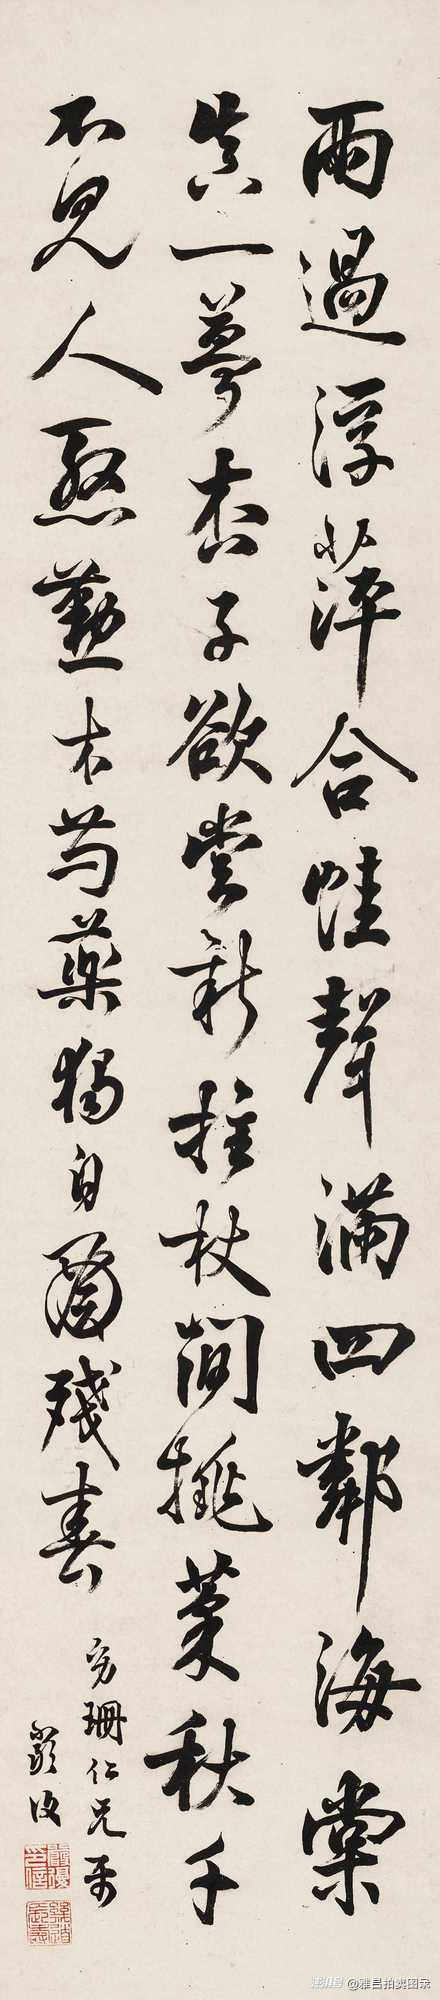 雨過浮萍合蛙聲滿四鄰海棠
真一夢杏子欲嘗新拄杖閒挑菜秋千
不見人慇懃木芍藥獨自殘春
珊仁兄
嚴復
@雅昌拍卖图录